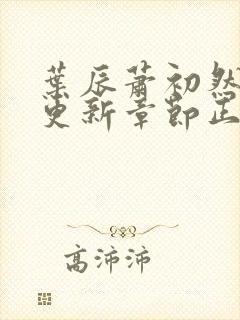 葉辰蕭初然
更新章節正
高沛沛